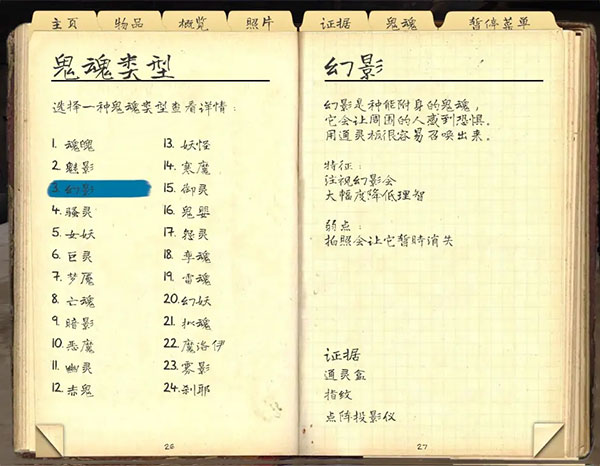 主页 物品 概览 照片 证据 鬼魂 暂停菜单
鬼魂类型
选择一种鬼魂类型查看详情:
1. 魂魄
2. 魅影
3. 幻影
4. 骚灵
5. 女妖
6. 巨灵
7. 梦魇
8. 亡魂
9. 暗影
10. 恶魔
11. 幽灵
12. 赤鬼
13. 妖怪
14. 寒魔
15. 御灵
16. 鬼婴
17. 怨灵
18. 孪魂
19. 雷魂
20. 幻妖
21. 拟魂
22. 魔洛伊
23. 雾影
24. 刹耶
26
幻影
幻影是种能附身的鬼魂,
它会让周围的人感到恐惧.
用通灵板很容易召唤出来.
特征:
注视幻影会
大幅度降低理智
弱点:
拍照会让它暂时消失
证据
通灵盒
指纹
点阵投影仪
27